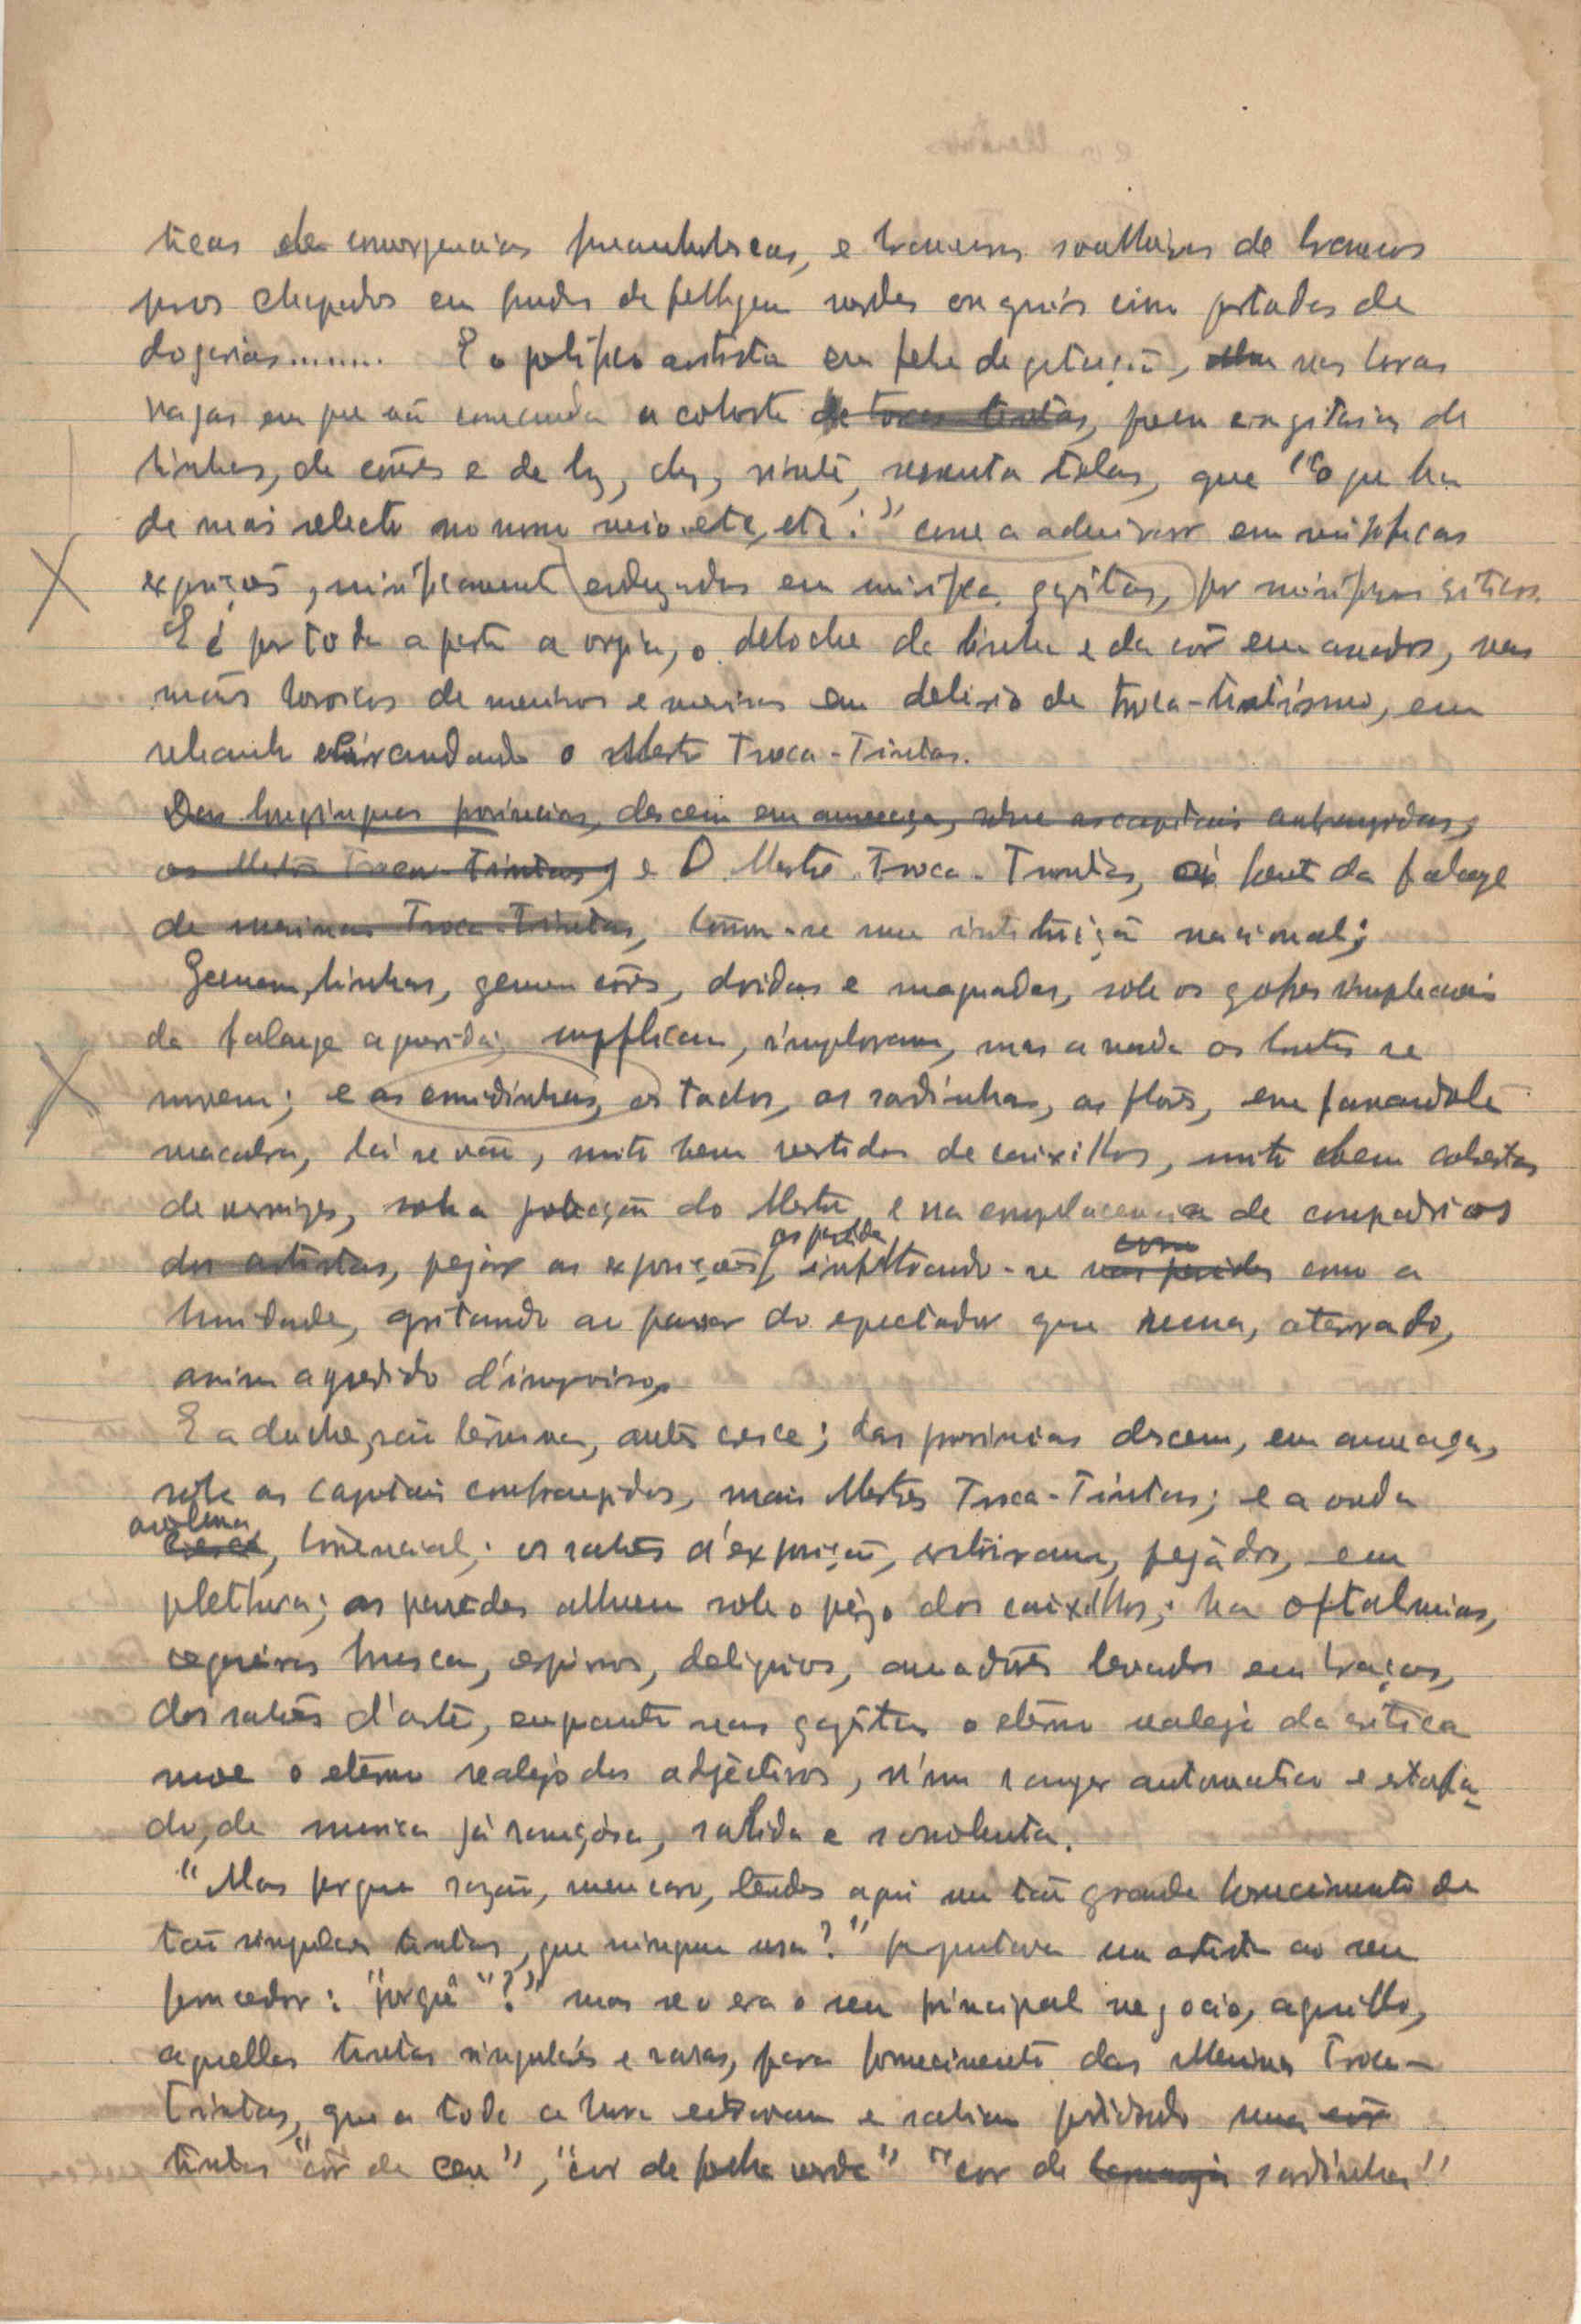 ticas de convergencias funambulescas, e brancuras soalheiras de brancos
puros chapados em fundos de folhagem verdes ou grés como portadas de
E o prolifico artista em febre de gestação, nas horas
vagas em que não comanda a cohorte de troca tintas, quem cogitações de
linhas, de côres e de luz, vinte, sessenta telas, que "o que ha
de mais selecto no nosso meio etc, etc:" corre a admirar em mirificas
exposições, mirificamente endeuzadas em mirificas gazêtas, por mirificos criticos.
E é por toda a parte a orgia, o deboche da linha e da côr em anedos, nas
mãos heroicas de meninos e meninas em delirio de troca-tintismo, em
rebanho cirandando o Mestre Troca-Tintas.
Das longinquas provincias, descem em ameaça, sobre as capitais confrangidas,
os Mestres Troca-Tintas, e O Mestre Troca-Tintas, á frente da falange
de meninas Troca-Tintas, tornou-se uma instituição nacional;
Gemem, linhas, gemem côres, doridas e maguadas, sob os golpes implacaveis
da falange aguerrida, supplicam, imploram, mas a nada os brutos se
movem; e as ermidinhas, os tachos, as sardinhas, as flores, em farandole
macabra, lá se vão, muito bem vestidas de caixilhos, muito bem cobertas
de vernizes, sob a protecção do Mestre, e na complacencia de compadrios
dos artistas, pejar as exposições, as paredes infiltrando-se com nas paredes como a
humidade, gritando ao passar do espectador que recua, aterrado,
assim agredido d'improviso.
E a duche, não termina, antes cresce; das provincias descem, em ameaça,
sobre as capitais confrangidas, mais Mestres Troca-Tintas; e a onda
avoluma cresce, torrencial; os salões d'exposição, estoiram, pejádos, em
plethora; as paredes alluem sob o pêzo dos caixilhos; ha oftalmias,
cegueiras bruscas, espirros, deliquios, amadores levados em braços,
dos salões d'arte, emquanto nas gazêtas o eterno realejo da critica
move o eterno realejo dos adjectivos, n'um ranger automatico e estafa-
do, de musica já rançosa, sabida e somolenta.
"Mas porque razão, meu caro, tendes aqui um tão grande fornecimento de
tão singulares tintas, que ninguem usa?" perguntava um artista ao seu
fornecedor: "porquê"?" mas se o era o seu principal negocio, aquillo,
aquellas tintas singulares e raras, para fornecimento das Meninas Troca-
Tintas, que a toda a hora entravam e sahiam pedindo uma côr
tintas "côr de ceu", "cor de folha verde" "cor de laranja sardinha"